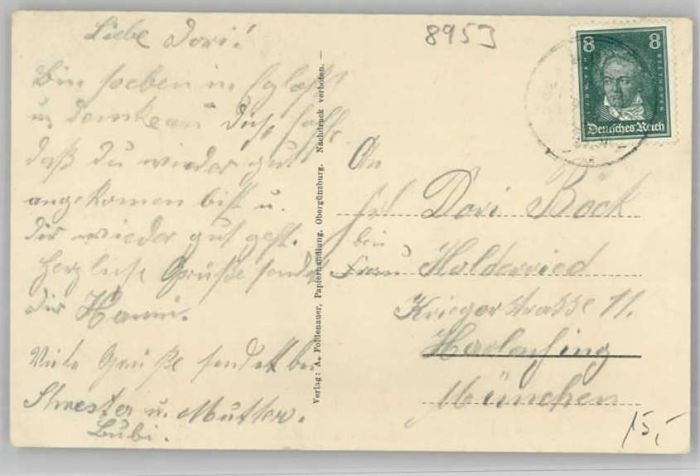 Liebe Dori!
Bin soeben in
u. denke an Dich, hoffe
daß du wieder gut
angekommen bist u.
dir wieder gut geht.
Herzliche Grüße sendet
dir Hanni.
Viele Grüße sendet
u. Mutter.
Bubi.
Verlag: A. Foldenauer, Papierhandlung, Obergünzburg. Nachdruck verboten.
8953
8 8
Deutsches Reich
An
Frl Dori Böck
bei
Frau Holderried
Kriegerstrasse 11.
Harlaching
München
15,-